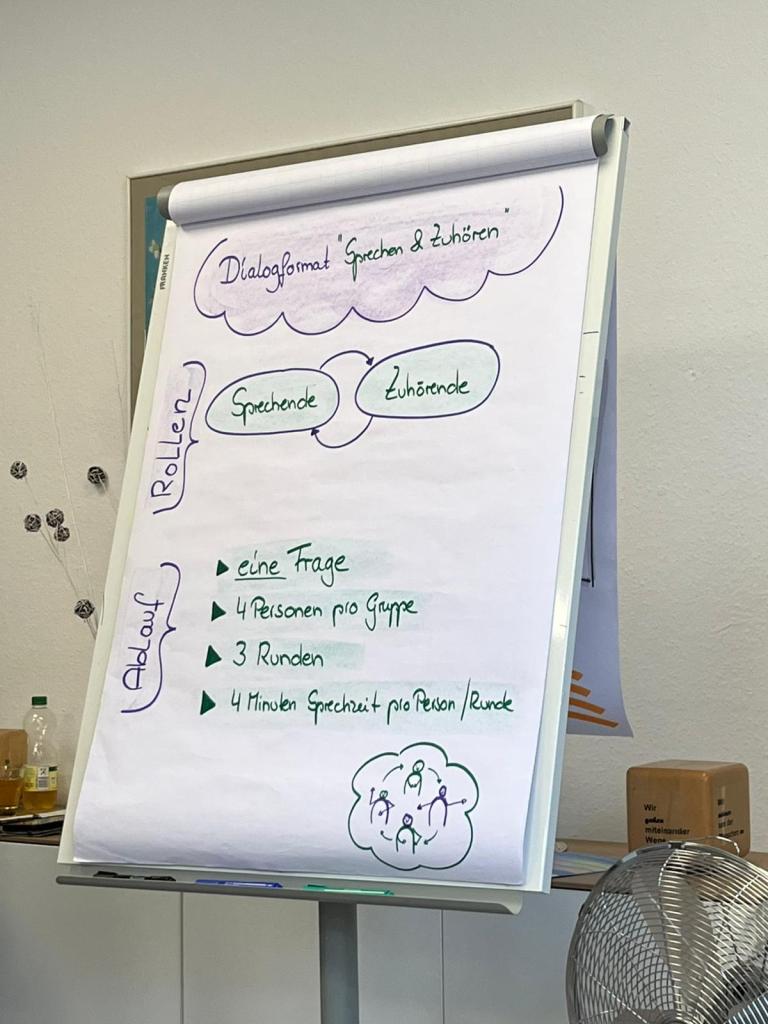 FRANKEN
Dialogformat "Sprechen & Zuhören"
Rollen
Sprechende
Zuhörende
Ablauf
▶ eine Frage
▶ 4 Personen pro Gruppe
▶ 3 Runden
▶ 4 Minuten Sprechzeit pro Person / Runde
Wir
miteinander